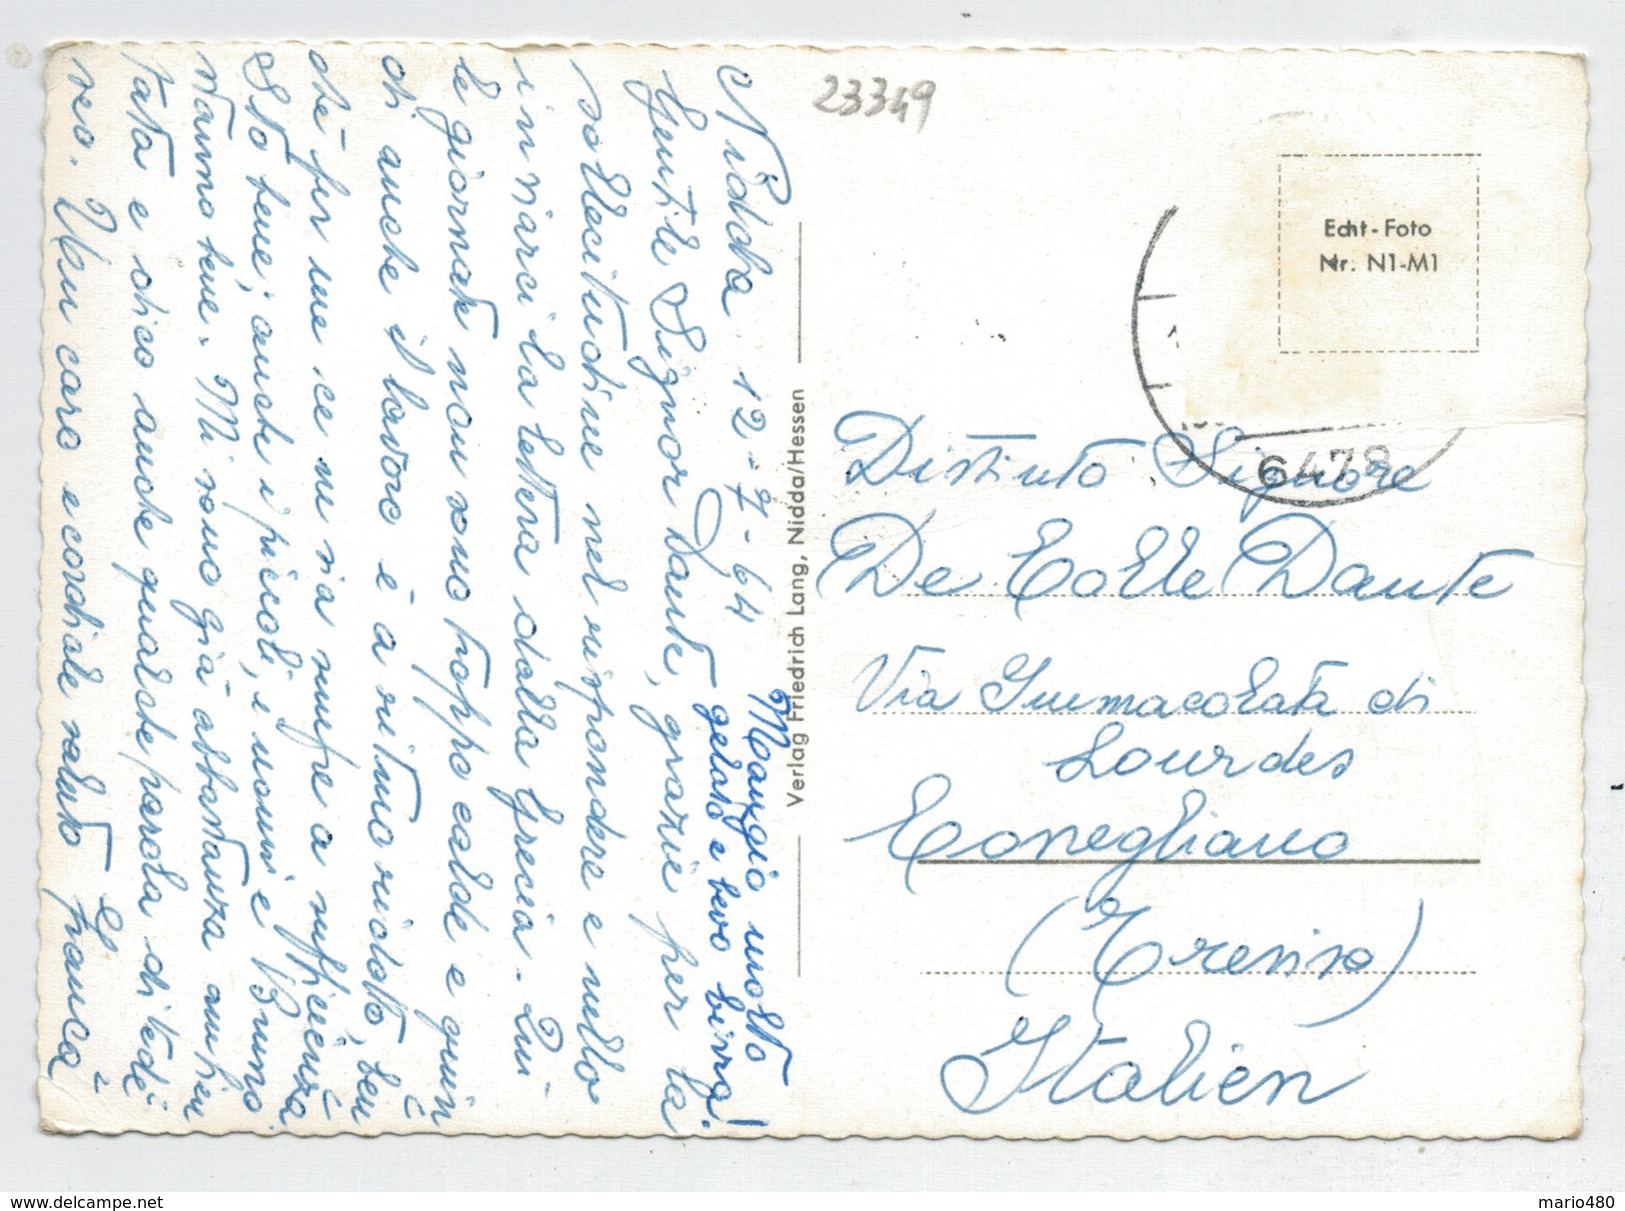 23349
Nidda 12-7-64
Gentile Signor Dante, grazie per la
sollecitudine nel rispondere e nello
inviarci la lettera della Grecia. Qui
le giornate non sono troppo calde e quin=
di anche il lavoro è a ritmo ridotto, ben=
chè per me ce ne sia sempre a sufficienza.
Sto bene; anche i piccoli, i nonni e Bruno
stanno bene. Mi sono già abbastanza ambien=
tata e dico anche qualche parola di tede=
sco. Un caro e cordiale saluto Franca
Mangio molto
gelato e bevo birra!
Verlag Friedrich Lang, Nidda/Hessen
Echt-Foto
Nr. N1-M1
6478
Distinto Signore
De Colle Dante
Via Immacolata di
Lourdes
Conegliano
(Treviso)
Italien
mario480